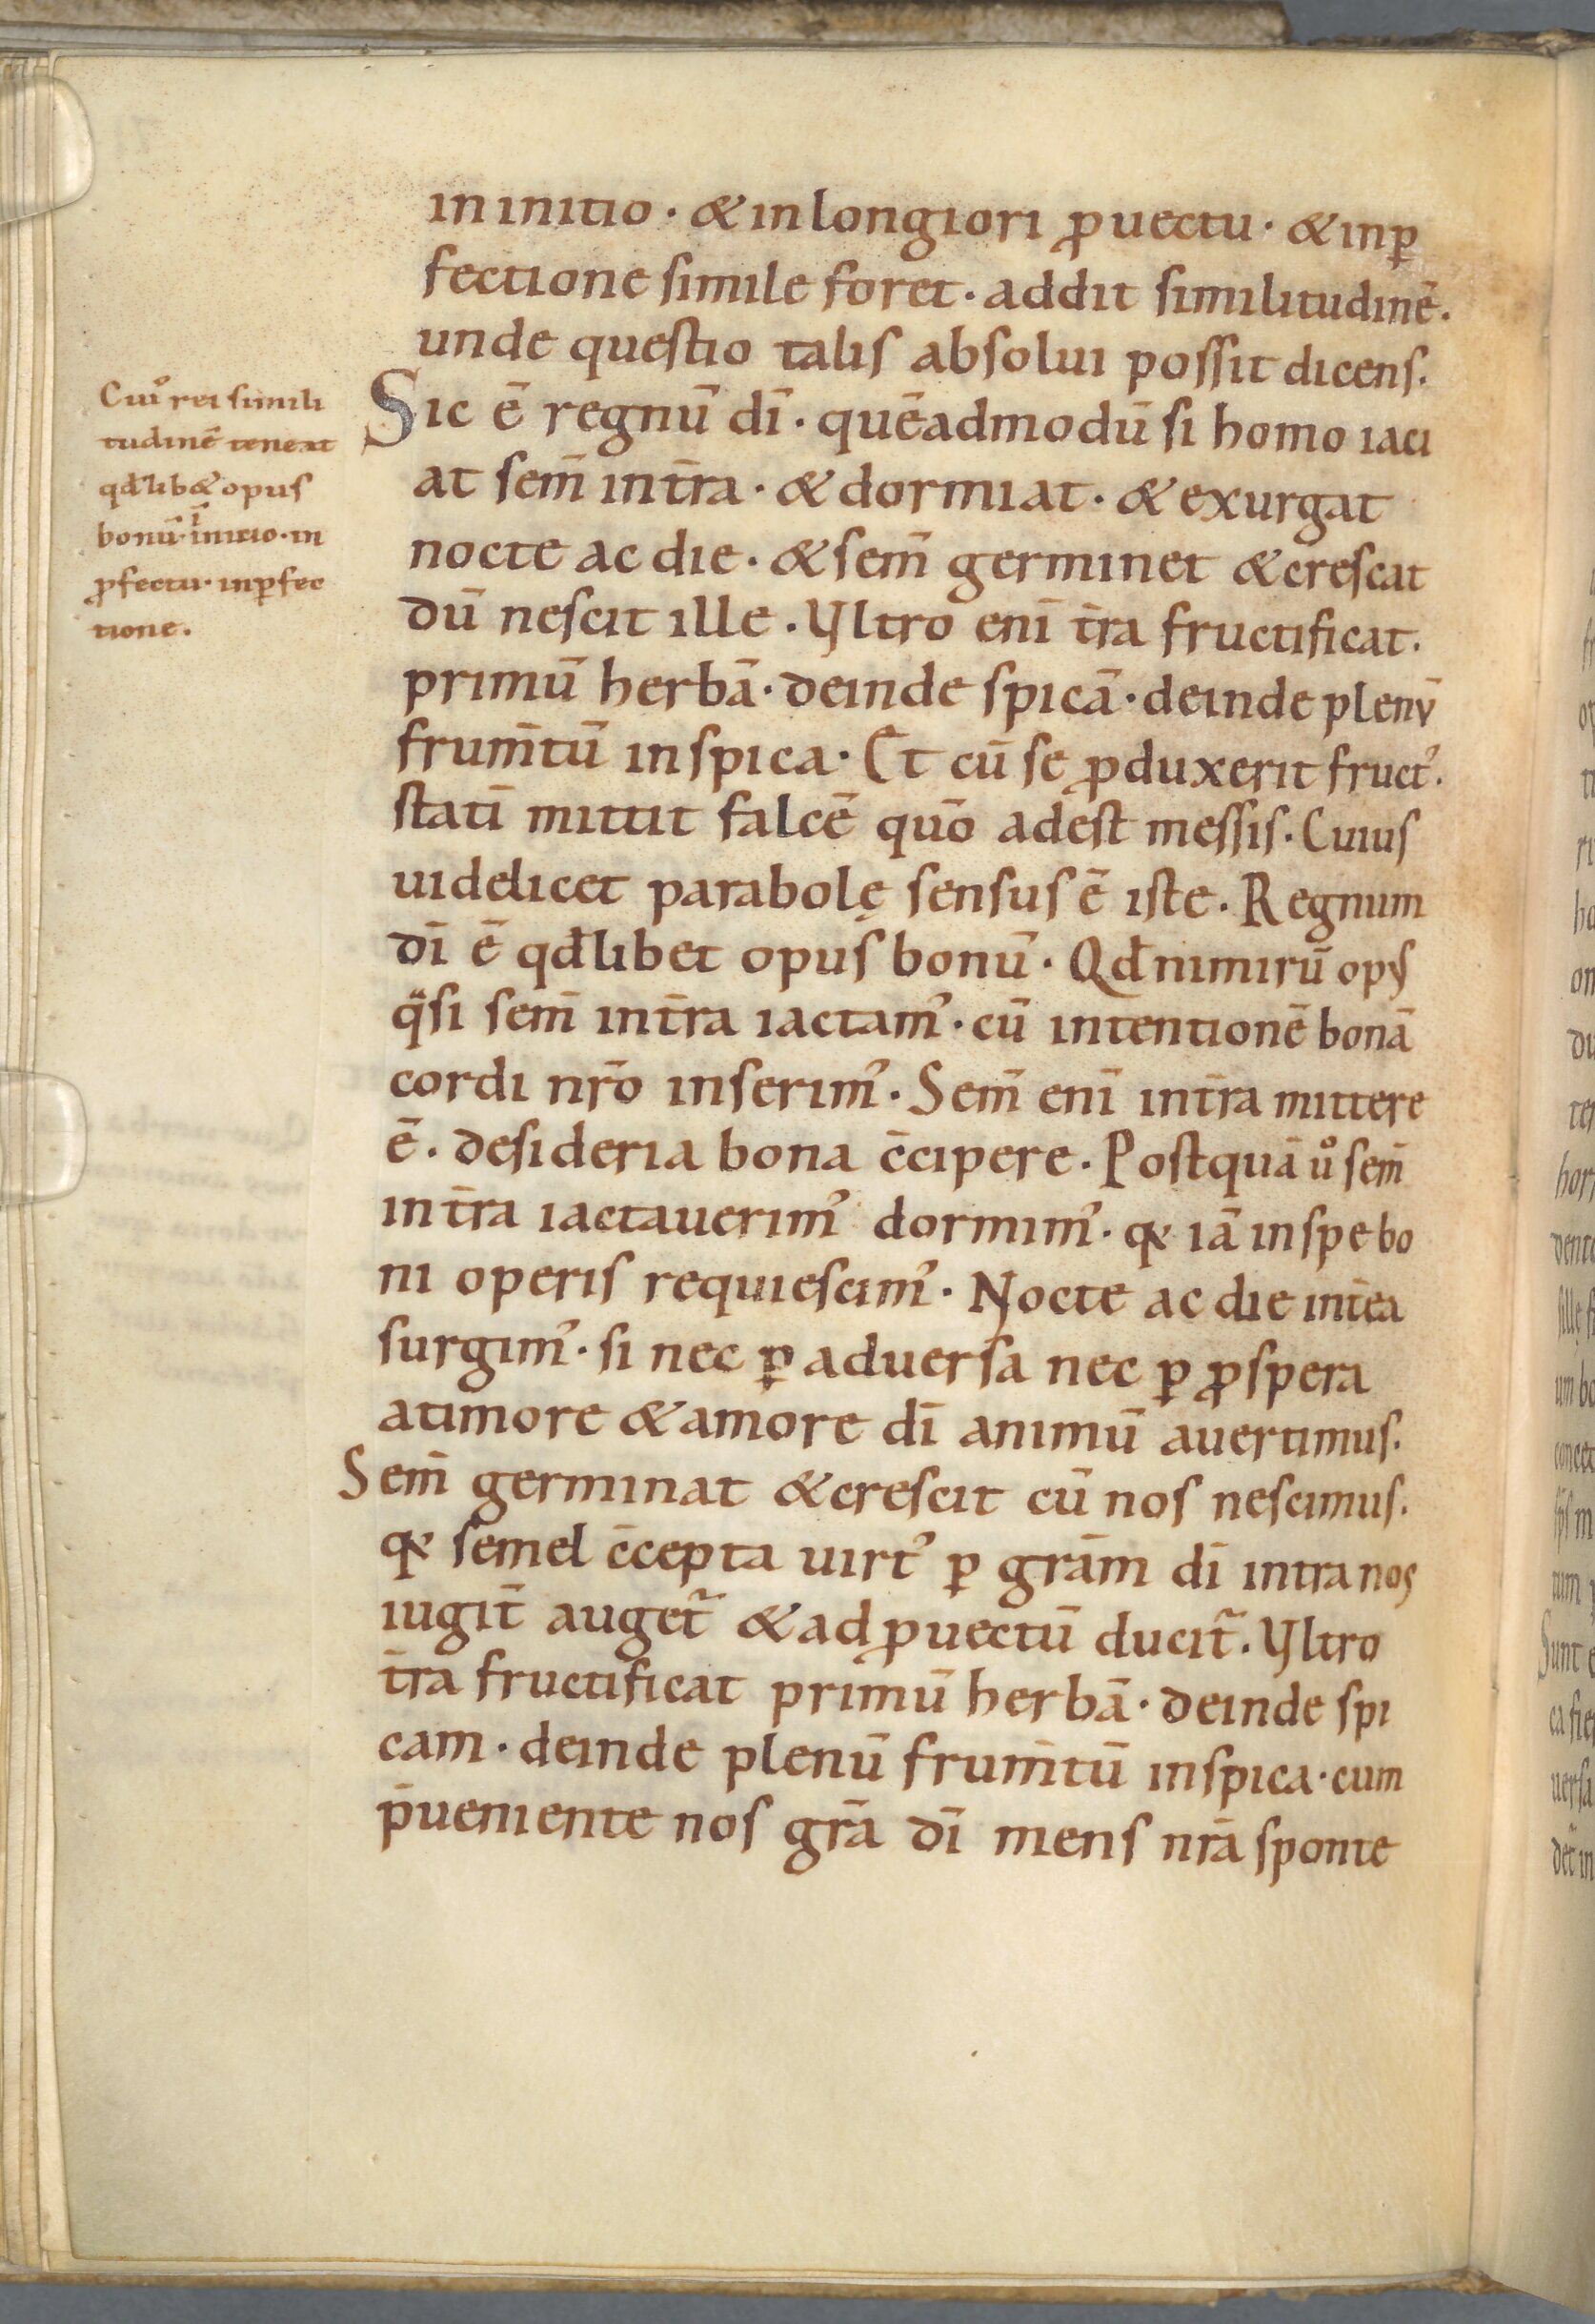 Cui᷒ rei simili
tudinē teneat
qđlibet opus
bonū· in initio· in
ꝓfectu· inꝑfec
tione.
in initio · & in longiori ꝓuectu · & inꝑ
fectione simile foret · addit similitudinē.
unde questio talis absolui possit dicens.
Sic ē regnū dī · quēadmodū si homo iaci
at sem̄ in t̄ra · & dormiat · & exurgat
nocte ac die · & sem̄ germinet & crescat
dū nescit ille . Vltro enī t̄ra fructificat.
primū herbā · deinde spicā · deinde plenū
frum̄tū in spica · Et cū se ꝓduxerit fruct᾽.
statī mittit falcē quō adest messis . Cuius
uidelicet parabolę sensus ē iste . Regnum
dī ē qđlibet opus bonū · Qđ nimirū opus
qͣsi sem̄ in t̄ra iactam᾽ · cū intentionē bonā
cordi nr̄o inserim᾽ . Sem̄ enī in t̄ra mittere
ē . desideria bona c̄cipere . Postquā uͦ sem̄
in t̄ra iactauerim᾽ dormim᾽ · qꝫ iā in spe bo
ni operis requiescim᾽ . Nocte ac die int̄ea
surgim᾽ · si nec ꝑ aduersa nec ꝑ ꝓspera
a timore & amore dī animū auertimus.
Sem̄ germinat & crescit cū nos nescimus.
qꝫ semel c̄cepta uirt᾽ ꝑ grām dī intra nos
iugit̄ auget᷑ & ad ꝓuectū ducit᷑ . Vltro
t̄ra fructificat primū herbā · deinde spi
cam · deinde plenū frum̄tū in spica · cum
p̄ueniente nos grā dī mens nr̄a sponte